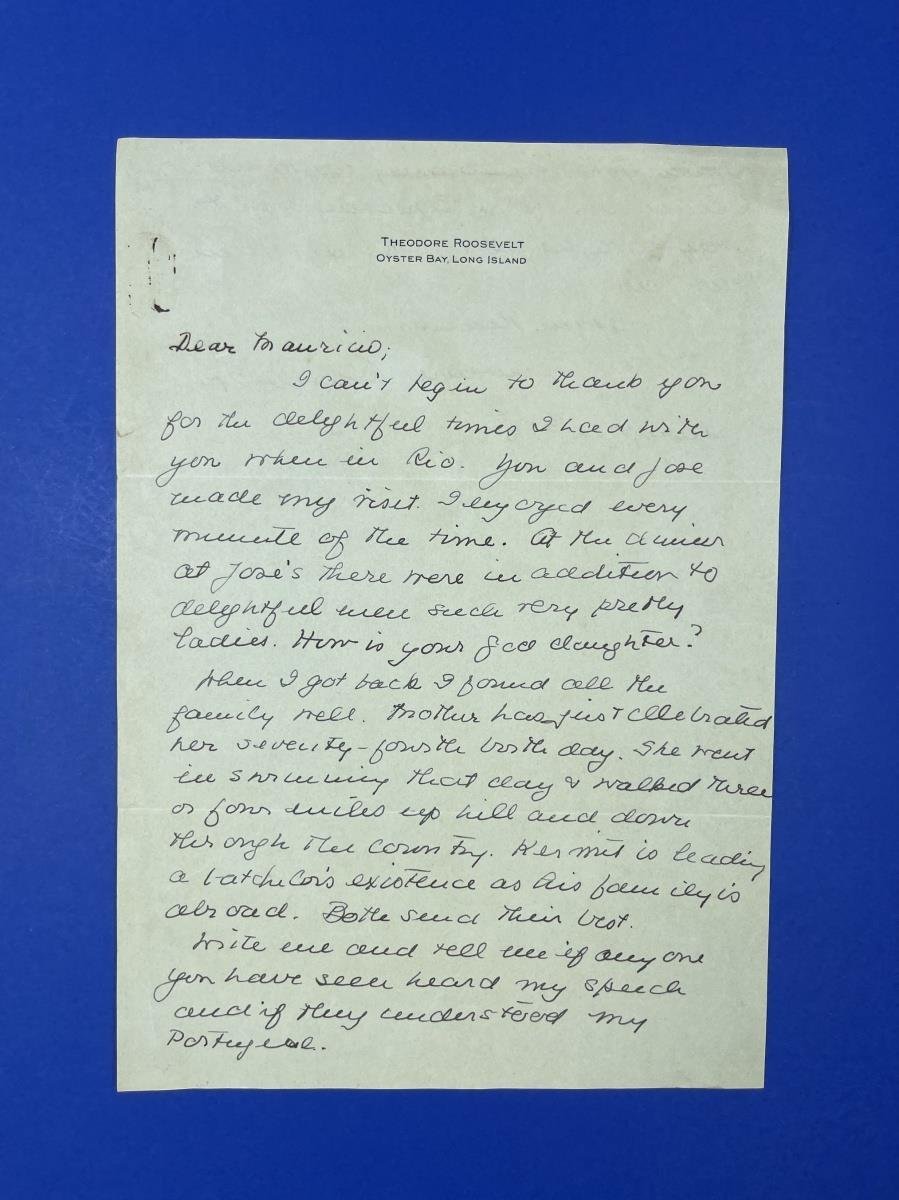 THEODORE ROOSEVELT
OYSTER BAY, LONG ISLAND
Dear Mauricio;
I can't begin to thank you
for the delightful times I had with
you when in Rio. You and Jose
made my visit. I enjoyed every
minute of the time. At the dinner
at Jose's there were in addition to
delightful men such very pretty
ladies. How is your god daughter?
When I got back I found all the
family well. Mother has just celebrated
her seventy-fourth birth day. She went
in swimming that day & walked three
or four miles up hill and down
through the country. Kermit is leading
a batchelor's existence as his family is
abroad. Both send their best.
Write me and tell me if any one
you have seen heard my speech
and if they understood my
Portuguese.